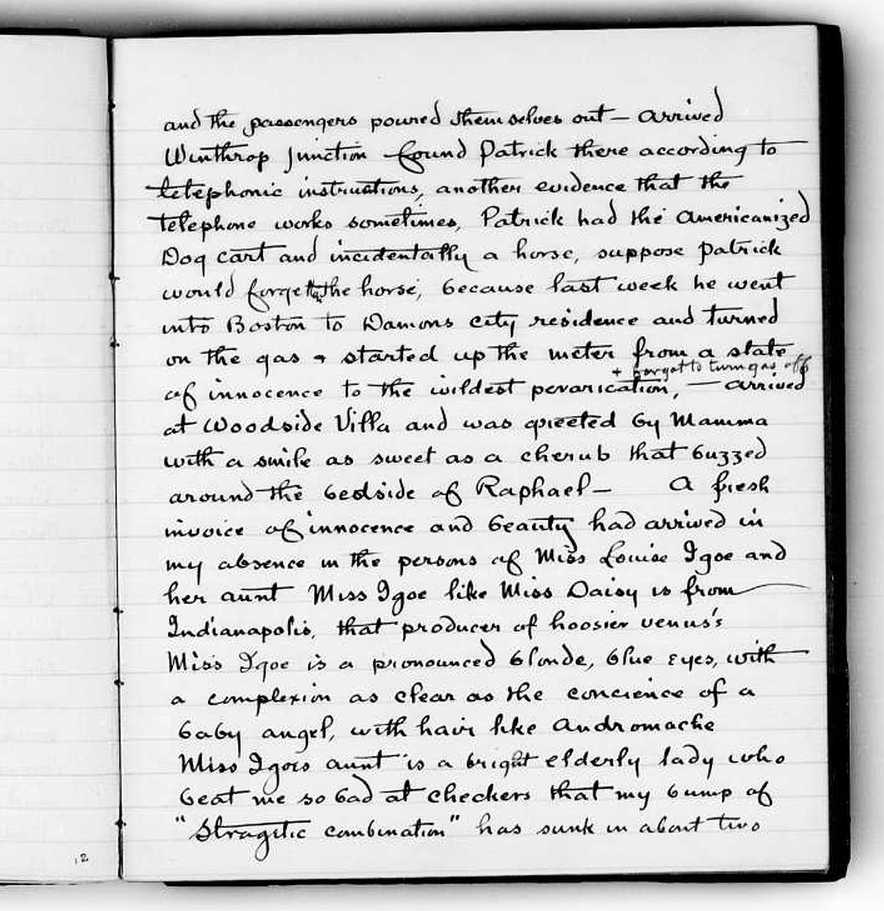 and the passengers poured themselves out — arrived
Winthrop junction found Patrick there according to
telephonic instructions, another evidence that the
telephone works sometimes, Patrick had the Americanized
Dog cart and incidentally a horse, suppose Patrick
would forget the horse, because last week he went
into Boston to Damons city residence and turned
on the gas & started up the meter from a state
+ forgot to turn gas off
of innocence to the wildest pevarication, — arrived
at Woodside Villa and was greeted by Mamma
with a smile as sweet as a cherub that buzzed
around the bedside of Raphael — A fresh
invoice of innocence and beauty had arrived in
my absence in the persons of Miss Louise Igoe and
her aunt Miss Igoe like Miss Daisy is from
Indianapolis, that producer of hoosier venus's
Miss Igoe is a pronounced blonde, blue eyes, with
a complexion as clear as the concience of a
baby angel, with hair like Andromache
Miss Igois aunt is a bright elderly lady who
beat me so bad at checkers that my bump of
"Stragetic combination" has sunk in about two
12